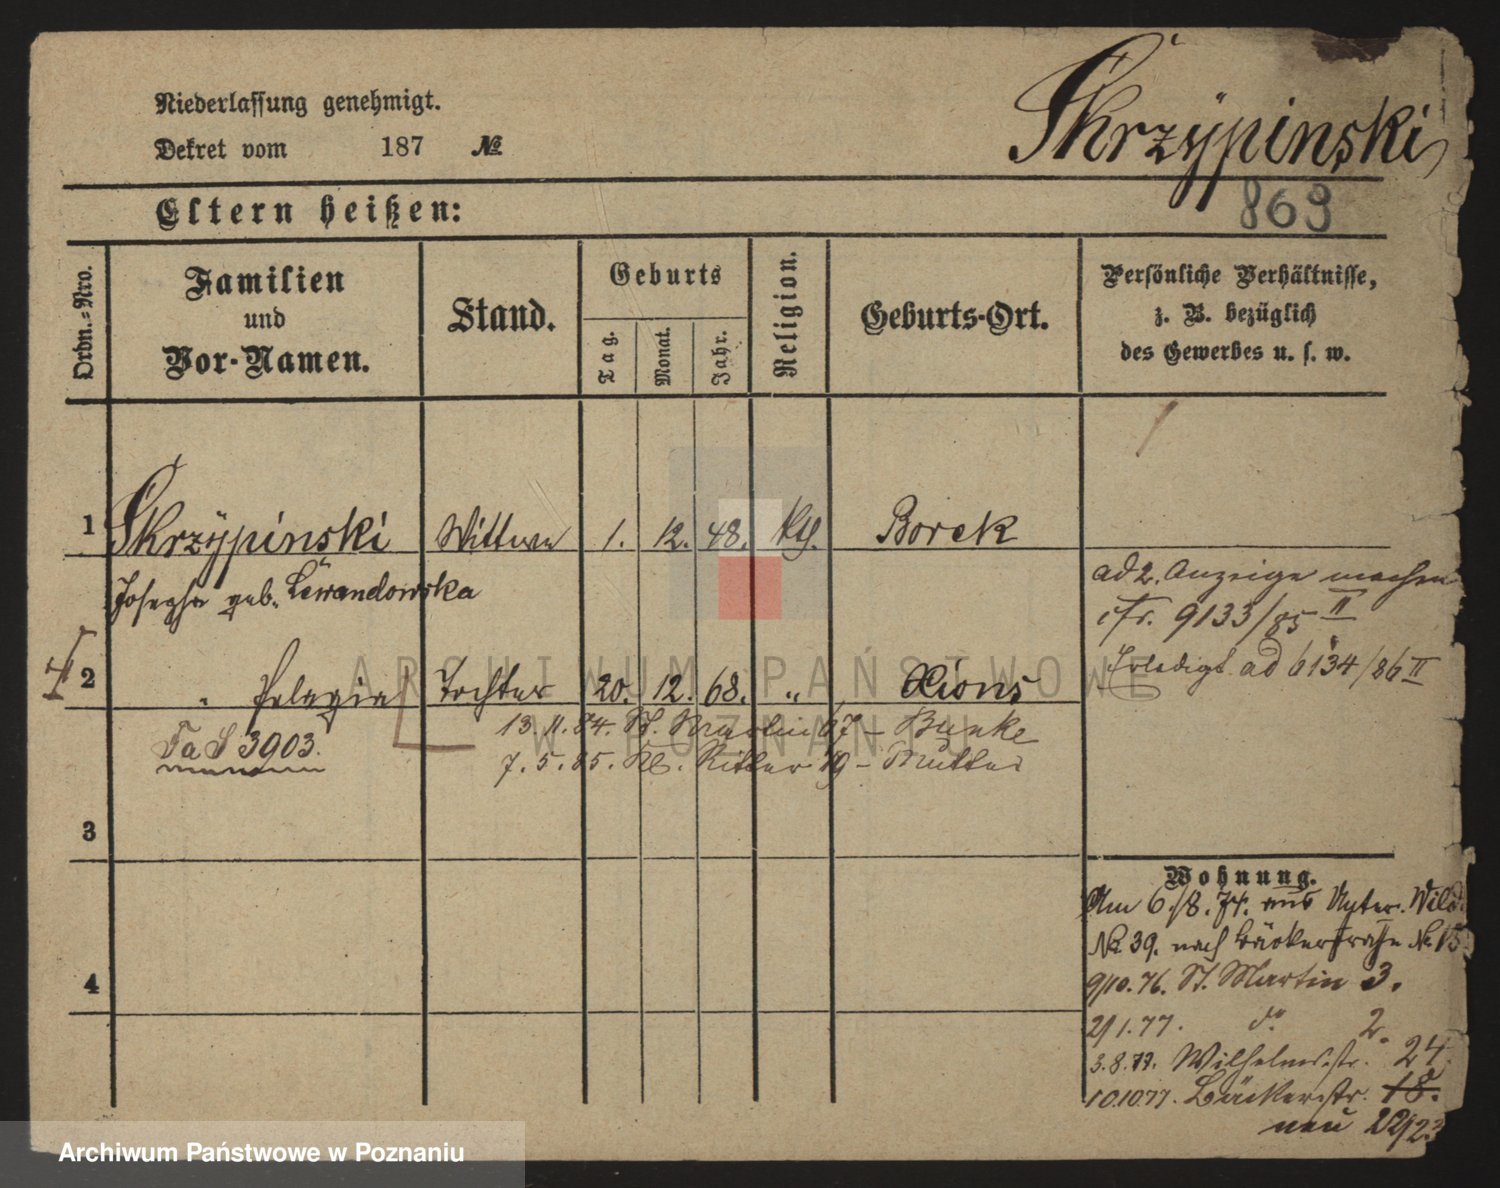 Niederlassung genehmigt.
Dekret vom 187 №
Skrzÿpinski
869
Eltern heißen:
Ordn.=Nro.
Familien und Vor-Namen.
Stand.
Geburts
Tag.
Monat.
Jahr.
Religion.
Geburts-Ort.
Persönliche Verhältnisse,
z. B. bezüglich
des Gewerbes u. s. w.
1 Skrzÿpinski Wittwe 1. 12. 48. kth. Borek
Josepha geb. Lewandowska
ad 2. Anzeige machen
Nr. 9133/85 II
Erledigt ad 6134/86 II
2 " Pelagia Tochter 20. 12. 68. " Xions
13. 11. 84. St. Martin 67 – Bunke
Fa S 3903.
7. 5. 85. Kl. Ritter 19 – Mutter
3
4
Wohnung.
Am 6/8. 74. aus Unter. Wilda
No. 39. nach Bäckerstraße No. 15
9/10. 76. St. Martin 3.
2/1. 77. do 2.
3. 8. 77. Wilhelmsstr. 24.
10.10.77. Bäckerstr. 18.
neu 22/23
ARCHIWUM PAŃSTWOWE
W POZNANIU
Archiwum Państwowe w Poznaniu